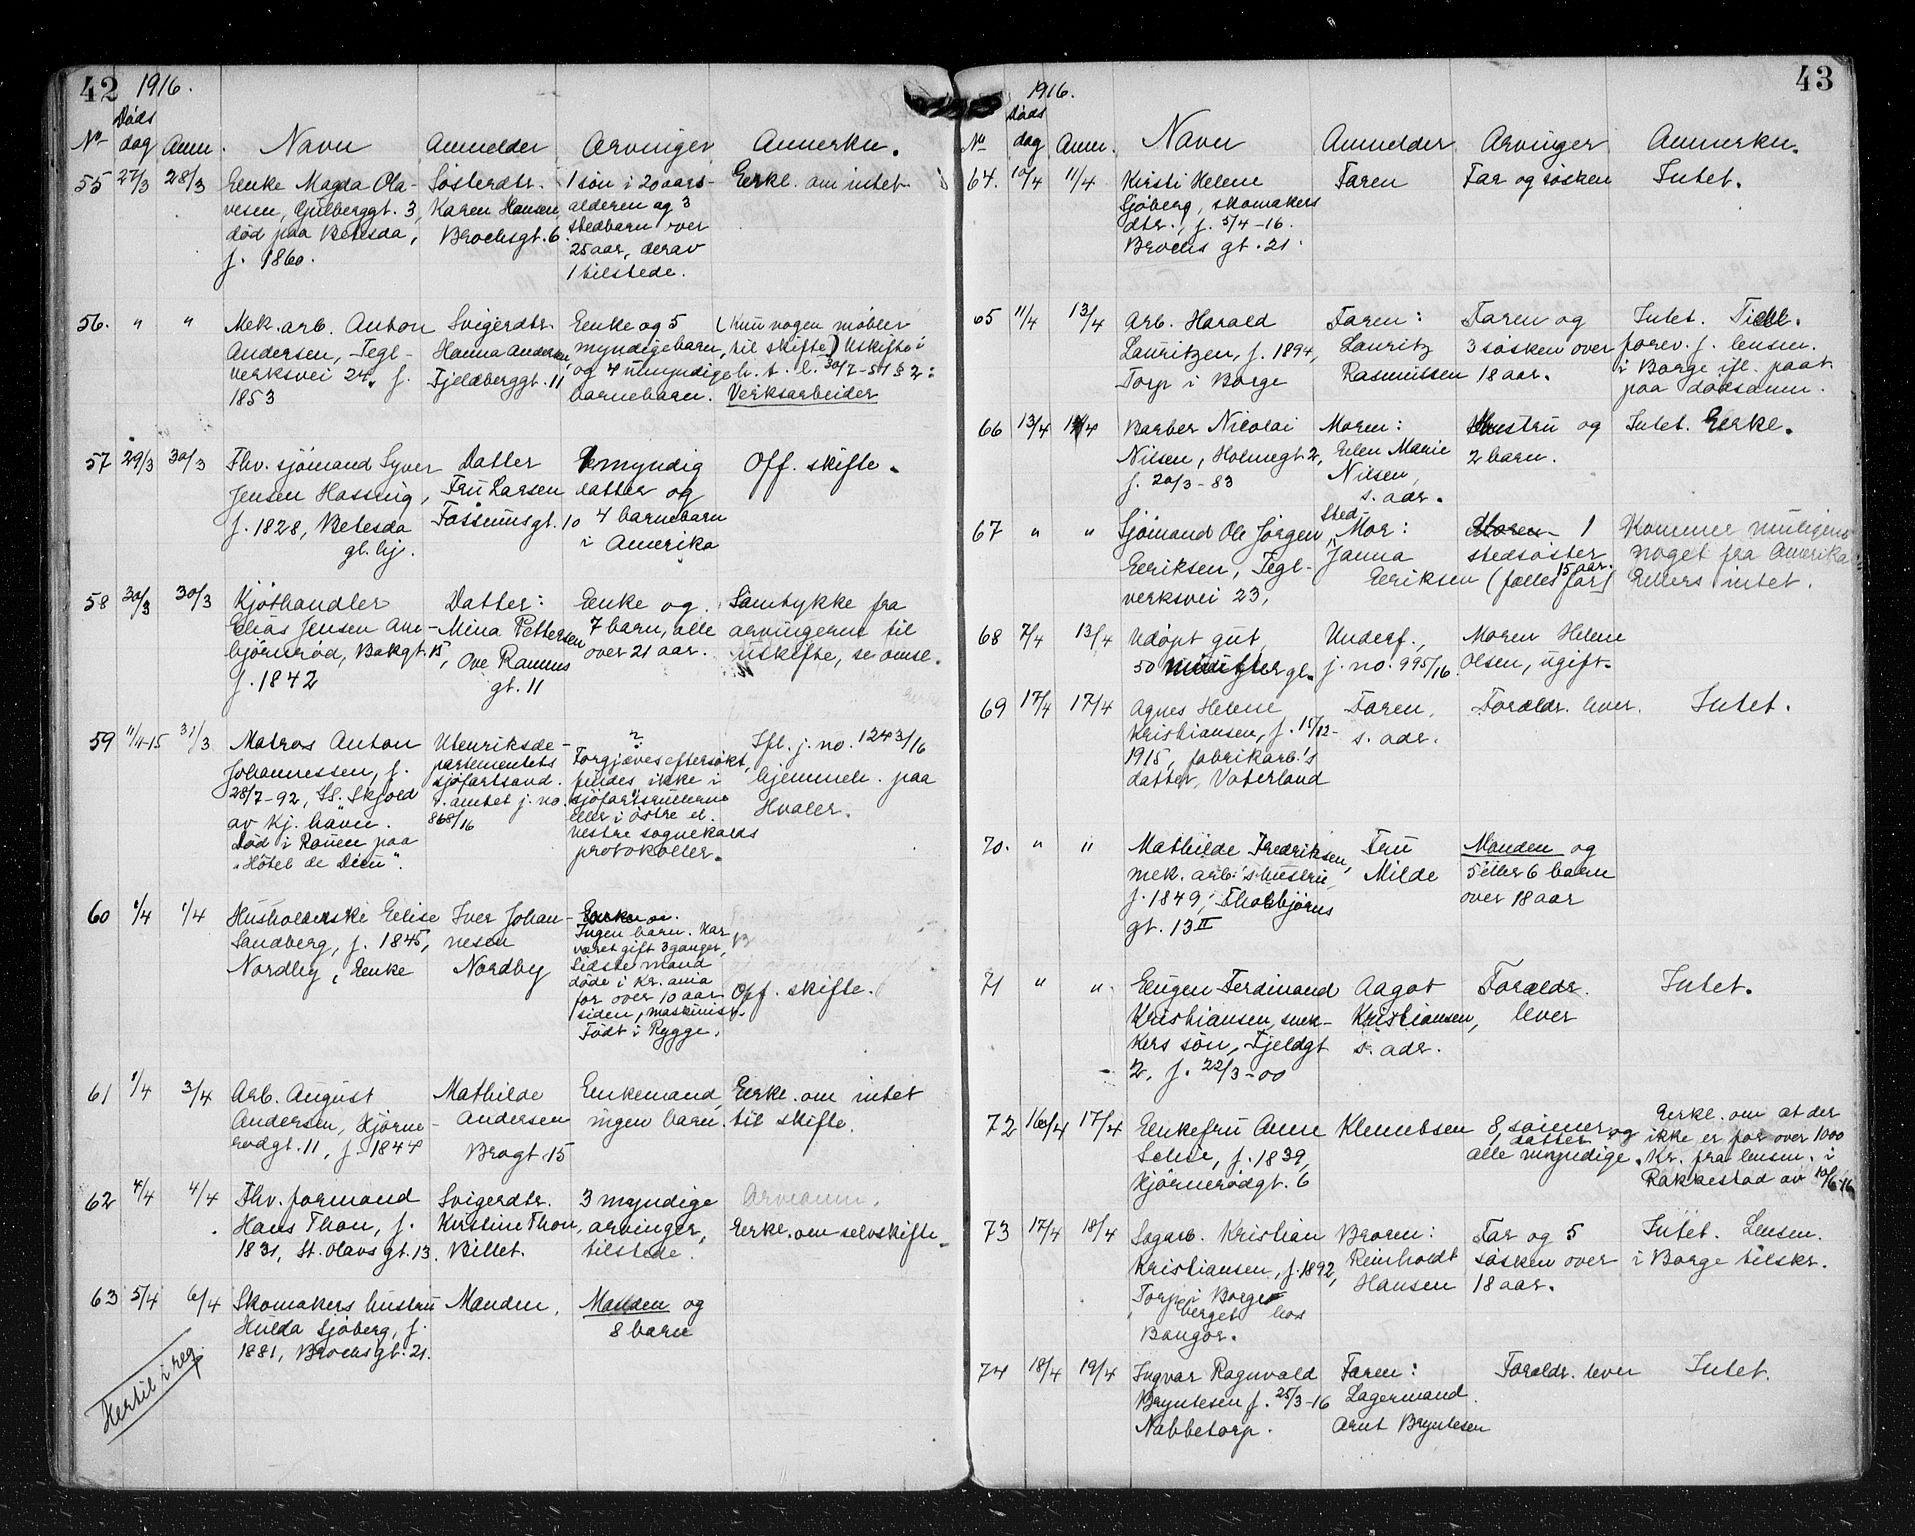 42 1916.
Døds
No dag Anm. Navn Anmelder Arvinger Anmerkn.
55 27/3 28/3 Enke Magda Ola- Søsterdtr. 1 søn i 20 aars- Erkl. om intet
vesen, Gulberggt. 3, Karen Hansen, alderen og 3
død paa Betesda, Brochsgt. 6. stedbarn over
f. 1860. 25 aar, derav
1 tilstede.
56. " " Mek. arb. Anton Svigerdtr. Enke og 5 (Kun nogen møbler
Andersen, Tegl- Hanna Andersen, myndige barn, til skifte) Uskifte i
verksvei 24, f. Fjeldberggt. 11 og 4 umyndige h. t. l. 30/7-51 § 2:
1853 barnebarn. Verksarbeider
57 29/3 30/3 Fhv. sjømand Syver Datter 1 myndig Off. skifte.
Jensen Hassing, Fru Larsen datter og
f. 1828, Betesda Fossumsgt. 10 4 barnebarn
gl. hj. i Amerika
58 30/3 30/3 Kjøthandler Datter: Enke og Samtykke fra
Elias Jensen Aue- Mina Pettersen 7 barn, alle arvingerne til
bjørnrød, Bakgt 15, Ove Ramus over 21 aar. uskifte, se omsl.
f. 1842 gt. 11
59 11/4-15 31/3 Matros Anton Utenriksde- ? Ifl. j. no. 1243/16
Johannessen, f. partementets Forgjæves eftersøkt, hjemmeh. paa
28/7-92, SS. "Skjold" sjøfartsavd. findes ikke i Hvaler.
av Kj. havn. t. amtet j. no. sjøfartsrullerne
Død i Rouen paa 868/16 eller i østre el.
"Hôtel de Dieu". vestre sognekalds
protokoller.
60 1/4 1/4 Husholderske Elise Iver Johan- Enke
Sandberg, f. 1845, nesen Ingen barn. Har
Nordby, Enke Nordby været gift 3 ganger,
Sidste mand
døde i Kr. ania
for over 10 aar Off. skifte.
siden, maskinist.
Født i Rygge.
61 1/4 3/4 Arb. August Mathilde Enkemand, Erkl. om intet
Andersen, Hjørne- Andersen ingen barn. til skifte.
rødgt. 11, f. 1844 Brogt. 15
62 4/4 4/4 Fhv. formand Svigerdtr. 3 myndige Arveanm.
Hans Thon, f. Kristine Thon, arvinger, Erkl. om selvskifte.
1831, St. Olavs gt. 13. Villet. tilstede.
63 5/4 6/4 Skomakers hustru Manden, Manden og
Hulda Sjøberg, f. 8 barn
1881, Brochsgt. 21.
Hertil i reg.
1916. 43
Døds
No dag Anm. Navn Anmelder Arvinger Anmerkn.
64. 10/4 11/4 Kirsti Helene Faren Far og søsken Intet.
Sjøberg, skomakers
dtr., f. 5/4-16.
Brochs gt. 21.
65 11/4 13/4 Arb. Harald Faren: Faren og Intet.
Lauritzen, f. 1894, Lauritz 3 søsken over forev. f. lensm.
Torp i Borge Rasmussen 18 aar. i Borge ifl. paat.
paa dødsanm.
66 13/4 14/4 Barber Nicolai Moren: Hustru og Intet. Erkl.
Nilsen, Holmegt. 2, Elen Marie 2 barn.
f. 20/3-83 Nilsen,
s. adr.
67 " " Sjømand Ole Jørgen Sted-Mor: Moren 1 Kommer muligens
Eriksen, Tegl- Janna stedsøster 15 aar. noget fra Amerika
verksvei 23, Eriksen (fælles far) Ellers intet.
68 7/4 13/4 Udøpt gut, Underf., Moren Helene
50 minutter gl. j. no. 995/16. Olsen, ugift.
69 17/4 17/4 Agnes Helene Faren, Forældr. lever. Intet.
Kristiansen, f. 15/12- s. adr.
1915, fabrikarb.'s
datter, Vaterland
70. " " Mathilde Fredriksen, Fru Manden og
mek. arb.'s hustru, Milde 5 eller 6 barn
f. 1849, Thorbjørns over 18 aar
gt. 13 II
71 " " Eugen Ferdinand Aagot Forældr. Intet.
Kristiansen, snek- Kristiansen, lever
kers søn, Fjeldgt s. adr.
2, f. 22/3-00
72 16/4 17/4 Enkefru Anne Klemetsen 8 sønner og Erkl. om at der
Lchie, f. 1839, datter ikke er for over 1000
Hjørnerødgt. 6 alle myndige. Kr. fra lensm. i
Rakkestad av 10/6-16
73 17/4 18/4 Sagarb. Kristian Broren: Far og 5 Intet. Lensm.
Kristiansen, f. 1892, Reinholdt søsken over i Borge tilskr.
Torp i Borge Hansen 18 aar.
berget hos
Bangor.
74 18/4 19/4 Ingvar Ragnvald Faren: Forældr. lever Intet.
Bryntesen f. 25/3-16 Lagermand
Nabbetorp. Arnt Bryntesen